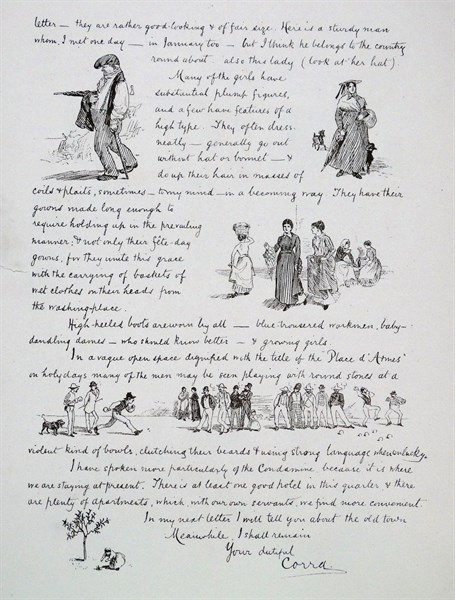 letter — they are rather good-looking & of fair size. Here is a sturdy man
whom I met one day — in January too — but I think he belongs to the country
round about also this lady (look at her hat)
Many of the girls have
substantial plump figures,
and a few have features of a
high type. They often dress
neatly — generally go out
without hat or bonnet — &
do up their hair in masses of
coils & plaits, sometimes — to my mind — in a becoming way They have their
gowns made long enough to
require holding up in the prevailing
manner; & not only their fête-day
gowns, for they unite this grace
with the carrying of baskets of
wet clothes on their heads from
the washing place.
High-heeled boots are worn by all — blue-trousered workmen, baby-
dandling dames — who should know better — & growing girls.
In a vague open space dignified with the title of the "Place d'Armes"
on holydays many of the men may be seen playing with round stones at a
violent kind of bowls, clutching their beards & using strong language when unlucky.
I have spoken more particularly of the Condamine because it is where
we are staying at present. There is at least one good hotel in this quarter & there
are plenty of apartments, which, with our own servants, we find more convenient.
In my next letter I will tell you about the old town
Meanwhile, I shall remain
Your dutiful
Corra